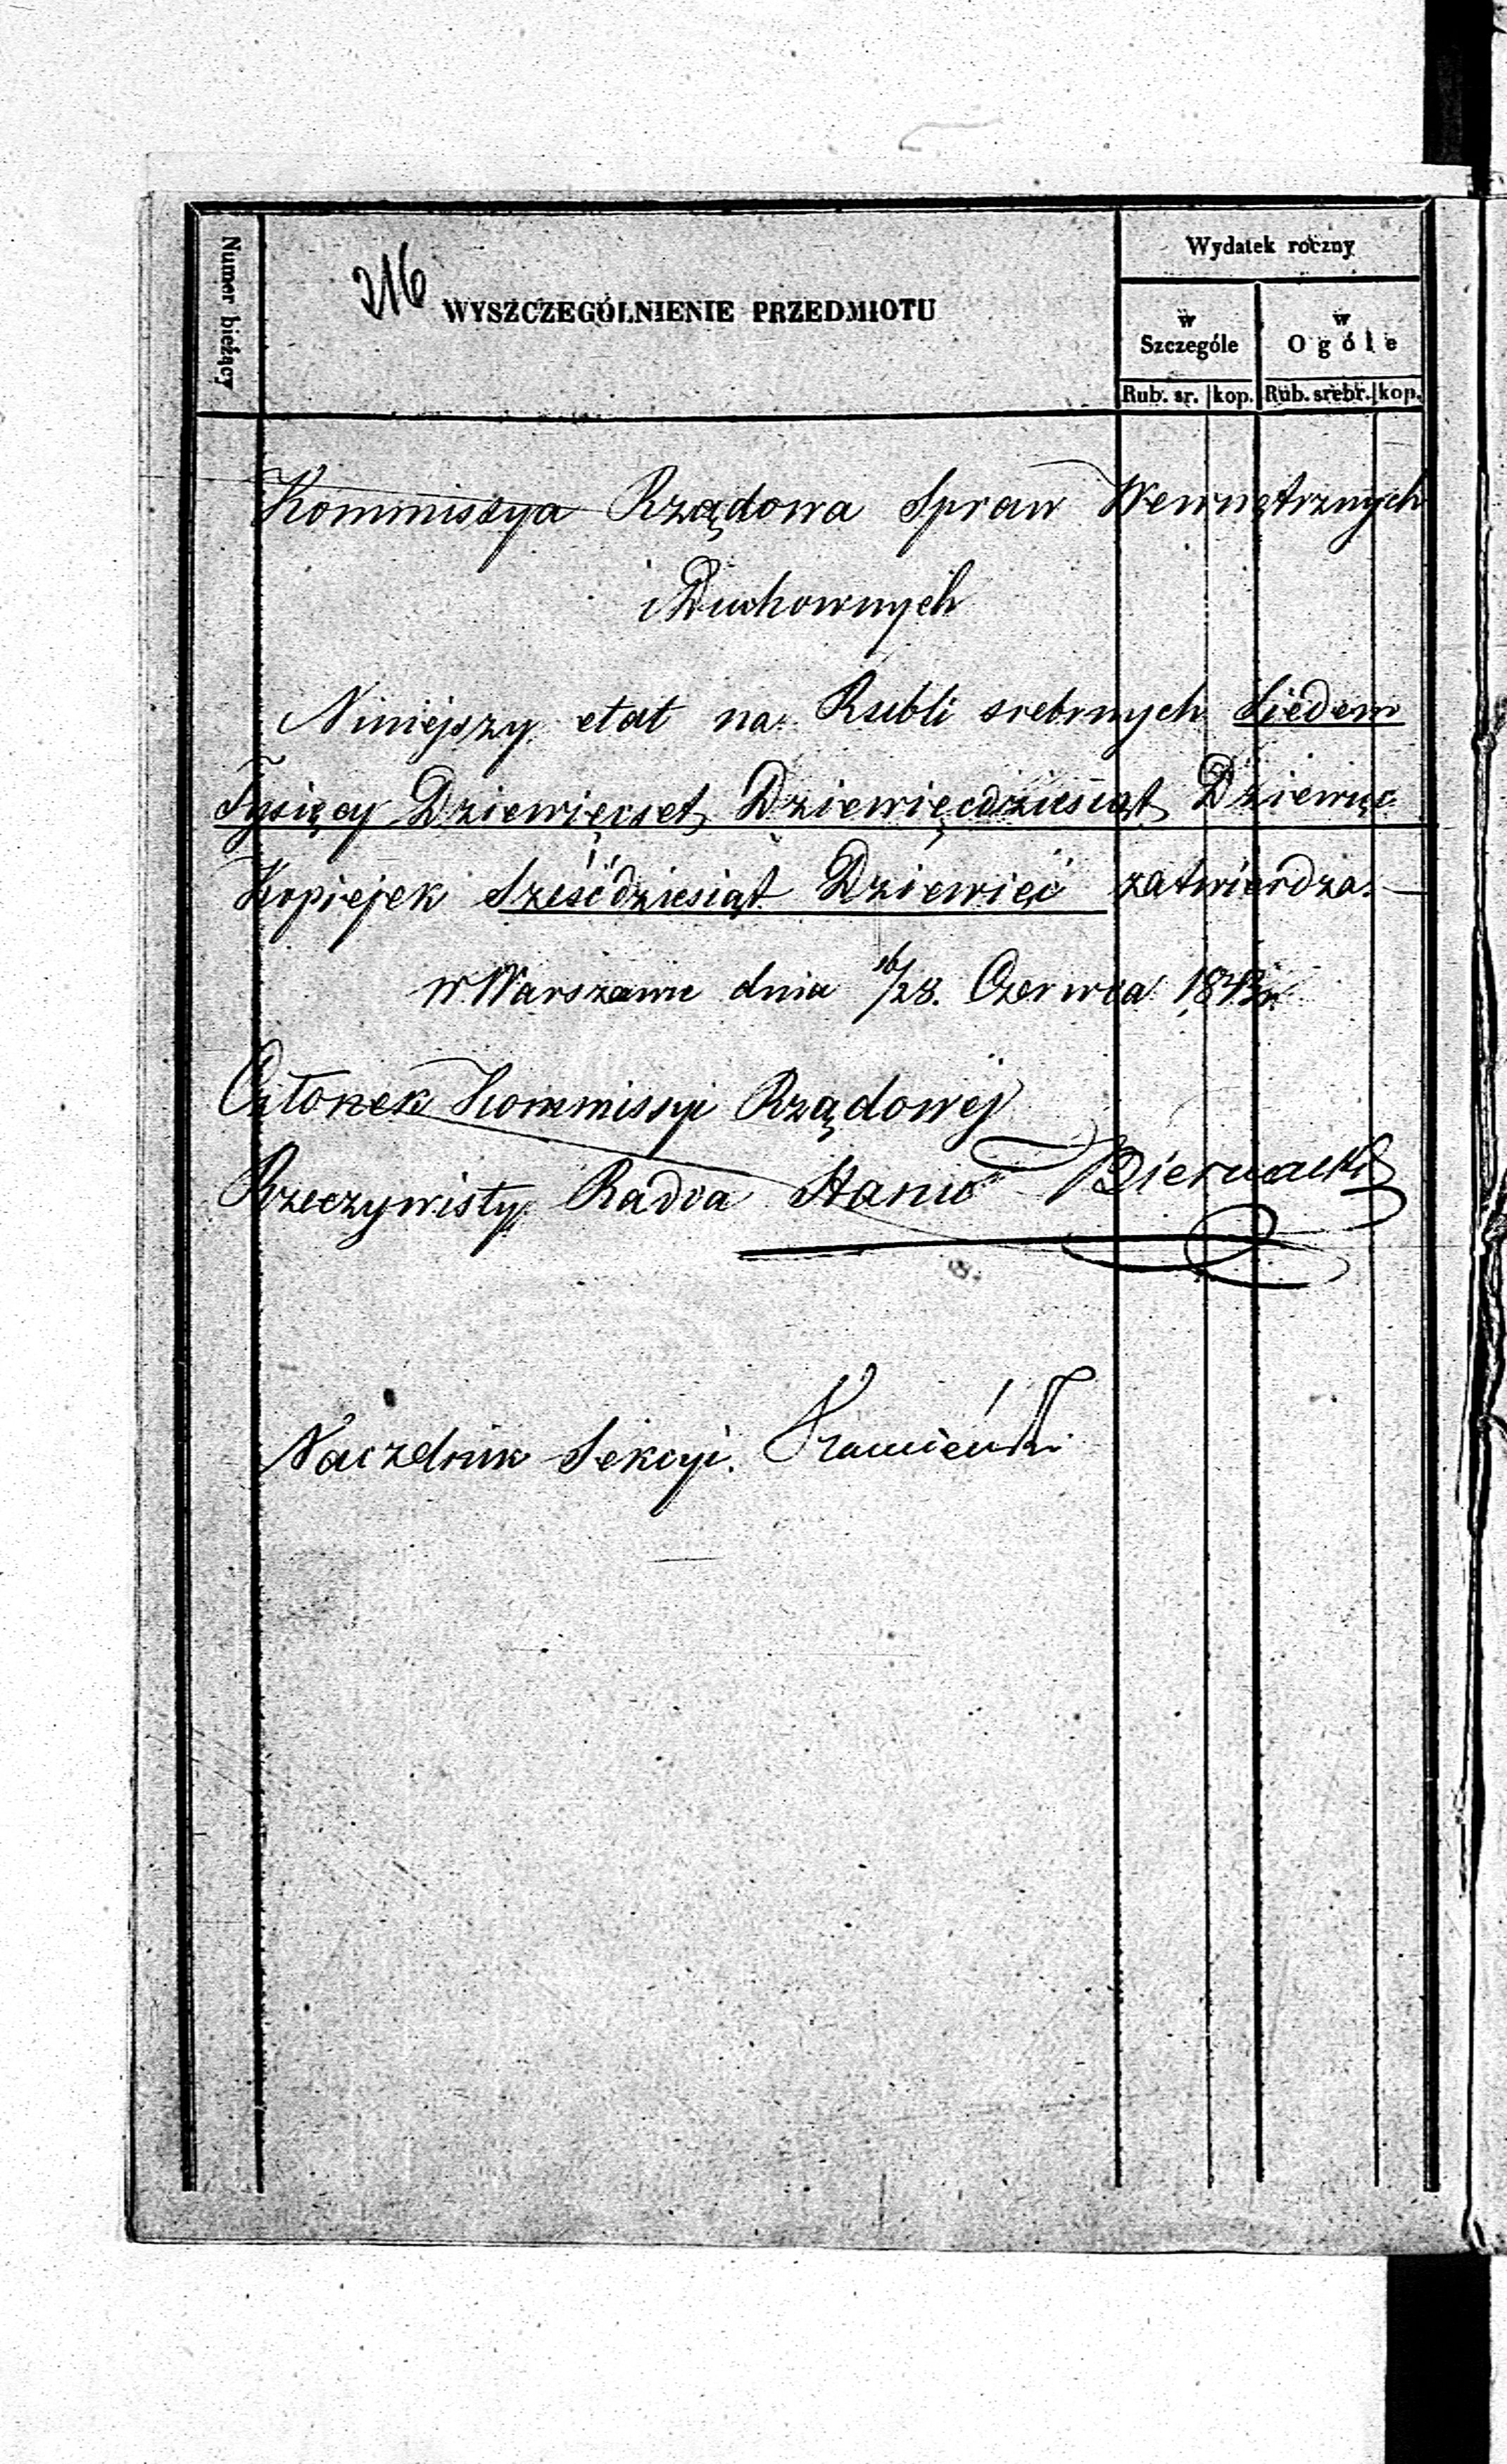 Numer bieżący
216
WYSZCZEGÓLNIENIE PRZEDMIOTU
Wydatek roczny
w Szczególe
w Ogóle
Rub. sr. kop. Rub. srebr. kop.
Kommissya Rządowa Spraw Wewnętrznych
i Duchownych
Niniejszy etat na Rubli srebrnych Siedem
Tysięcy Dziewięćset Dziewięćdziesiąt Dziewięć
Kopiejek Sześćdziesiąt Dziewięć zatwierdza.
w Warszawie dnia 16/28. Czerwca 1843 r.
Członek Kommissyi Rządowéj
Rzeczywisty Radca Stanu Biernacki
Naczelnik Sekcyi. Kamieński